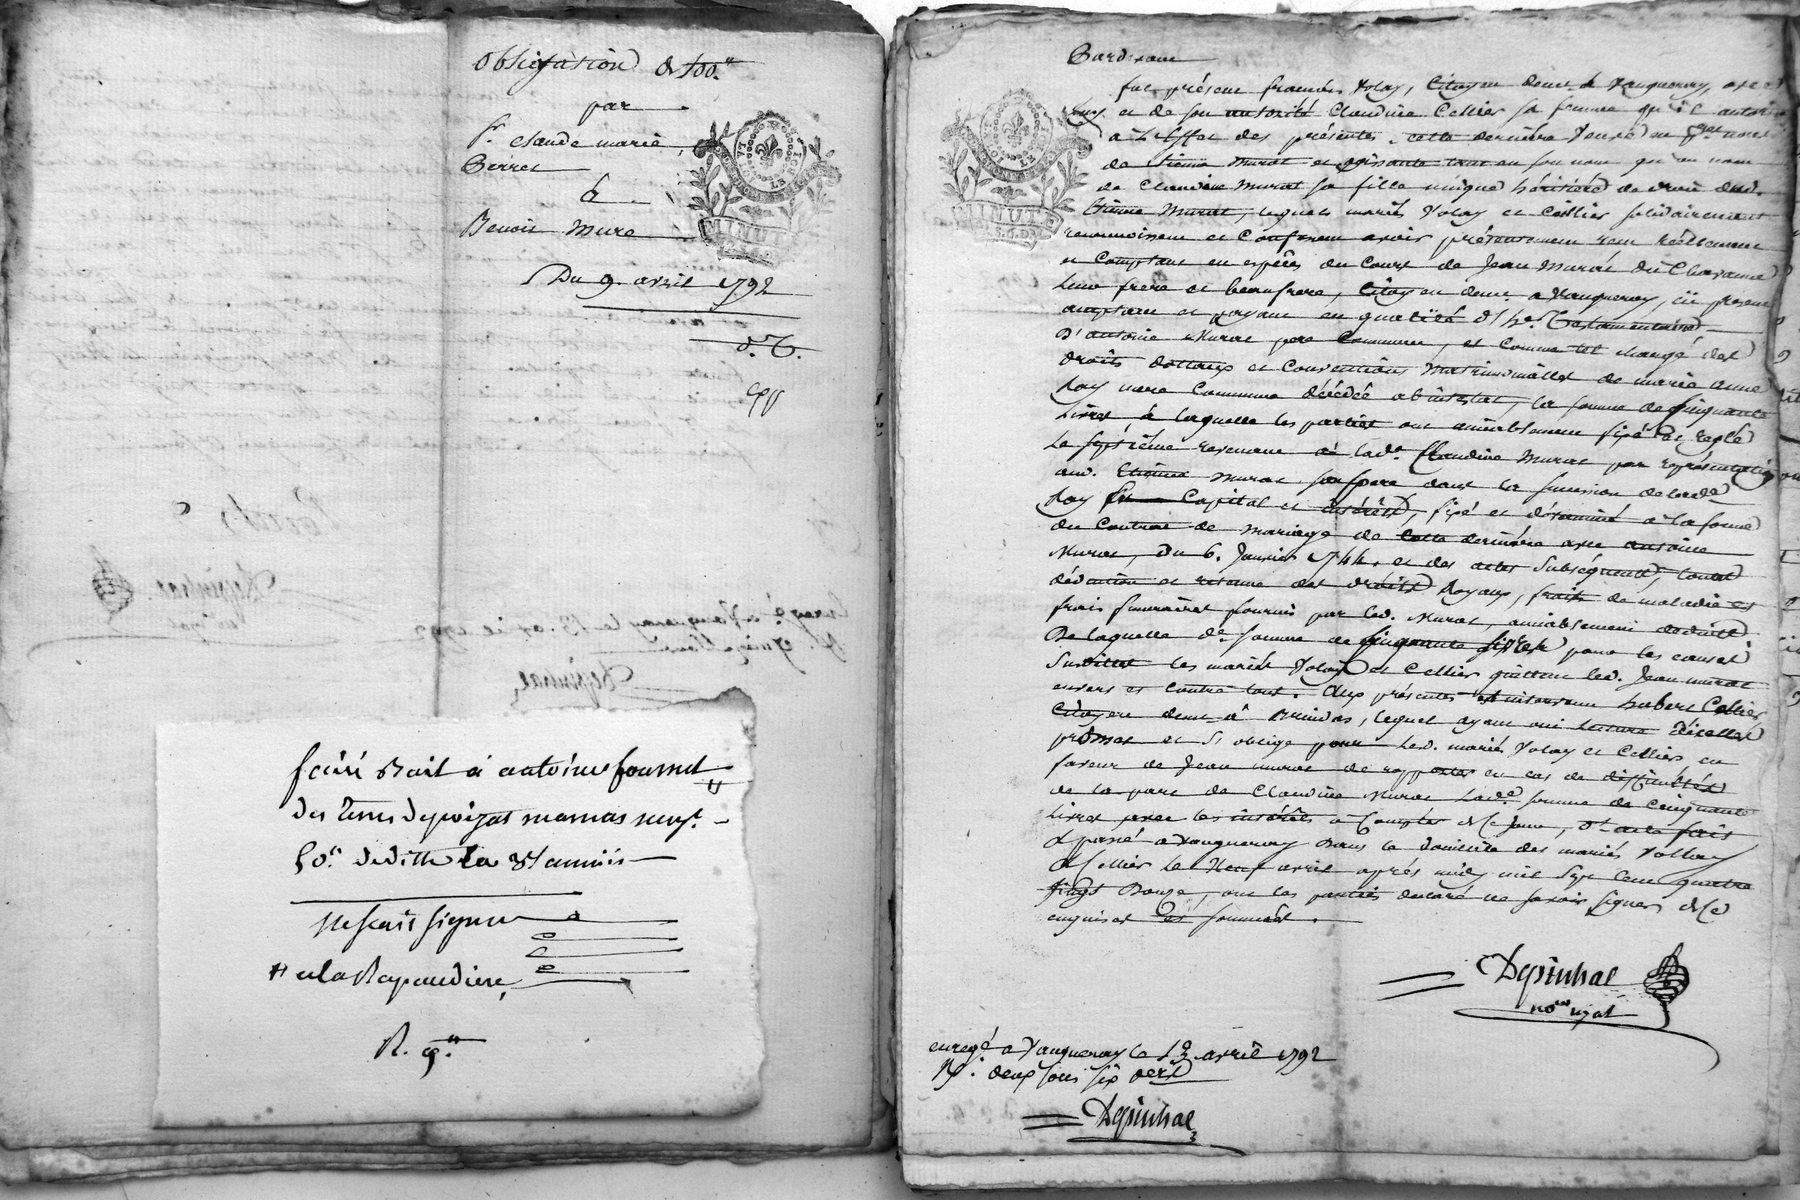 obligation de 500.ᵗᵗ
par
Sr. claude marie
Perret
à
Benoit Mure
Du 9. avril 1792
LA LOI LE ROI
MINUTE
faire Bail à antoine fournel
des terres
50.ᵗᵗ
ne scait signer
# a la Rapaudiere
R. 9.ᵗᵗ
Pardevant
fut présent françois Volay, Citoyen demt. à Vaugneray, avec
et de son autorité Claudine Cellier sa femme qu'il autorise
à L'effet des présentes, cette derniere Veuve en nôces
de Etienne Murat et agissante tant en son nom qu'au nom
de Claudine Murat sa fille unique héritiere de droit dud.
Etienne Murat, lesquels mariés Volay et Cellier solidairement
reconnoissent et Confessent avoir présentement reçu réellement
et Comptant en espèces du Cours de Jean Murat du Chavanne
leur frere et beaufrere, Citoyen demt. a Vaugneray, ici présent
acceptant et payant en qualité d'her. Testamentaire
D'antoine Murat pere Commun, et Comme tel chargé des
droits dottaux et Conventions Matrimonialles de marie anne
Ray mere Commune décédée abintestat, la somme de Cinquante
Livres à laquelle les parties ont amiablement fixé et reglé
Le septième revenant à lade. Claudine Murat par représentation
aud. Etienne Murat son pere dans la succession de lade.
Ray Capital et intérêts, fixé et déterminé a la forme
du Contrat de Mariage de cette derniére avec antoine
Murat, du 6. Janvier 1744. et des actes subséquents, toute
déduction et retenue des droits Royaux, frais de maladie et
frais funeraires fournis par led. Murat, amiablement déduits
De laquelle de. somme de Cinquante Livres pour les causes
Susdittes les mariés Volay et Cellier quittent led. Jean murat
envers et contre tous. Aux présentes est intervenu hubert Cellier,
Citoyen demt. à Brindas, lequel ayant oui lecture d'icelles
promet et s'oblige pour Led. mariés Volay et Cellier en
faveur de Jean murat de rapporter en cas de difficultés
de la part de Claudine Murat Lade. somme de Cinquante
Livres avec les intérêts à Compter de Ce jour, Dt. acte fait
et passé a Vaugneray Dans le domicile des mariés Vollay
et Cellier le Neuf avril après midy mil sept cent quatre
vingt Douze, ont les parties déclaré ne savoir signer de Ce
enquises et sommées.
Depinhac
nore. royal
enregé. a Vaugneray le 13 avril 1792
R. deux sous six
Depinhac